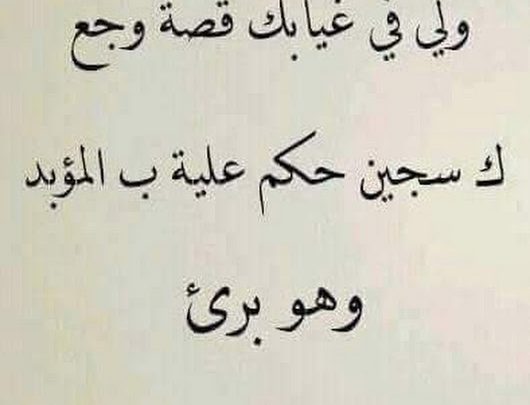 ولي في غيابك قصة وجع
ك سجين حكم علية ب المؤبد
وهو برئ